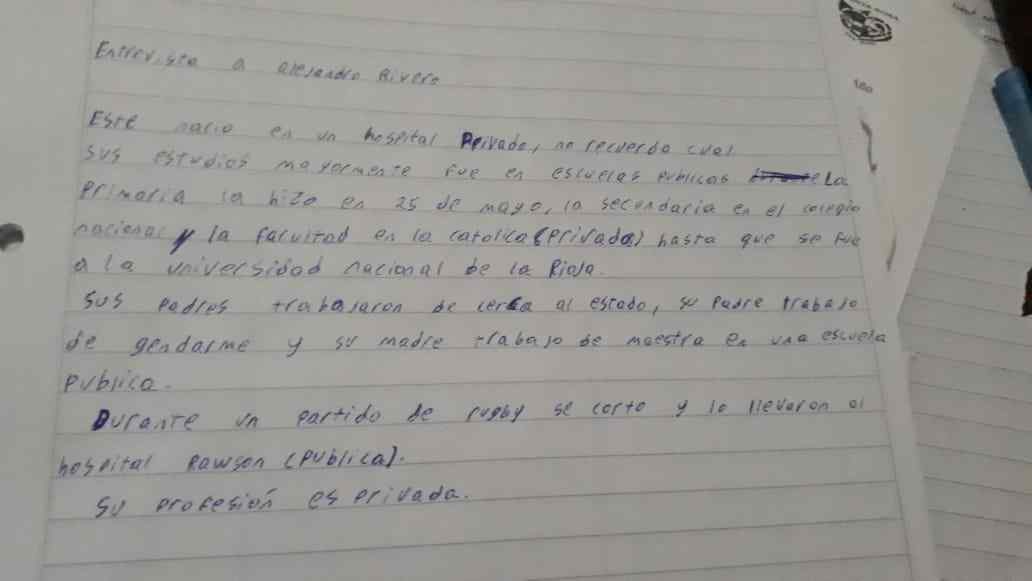 Entrevista a alejandro Rivero
Este nacio en un hospital Privado, no recuerdo cual
sus estudios mayormente fue en escuelas publicas La
primaria la hizo en 25 de mayo, la secundaria en el colegio
nacional y la facultad en la catolica (privada) hasta que se fue
a la universidad nacional de la Rioja.
sus padres trabajaron de cerca al estado, su padre trabajo
de gendarme y su madre trabajo de maestra en una escuela
publica.
Durante un partido de rugby se corto y lo llevaron al
hospital Rawson (publica).
su profesión es privada.